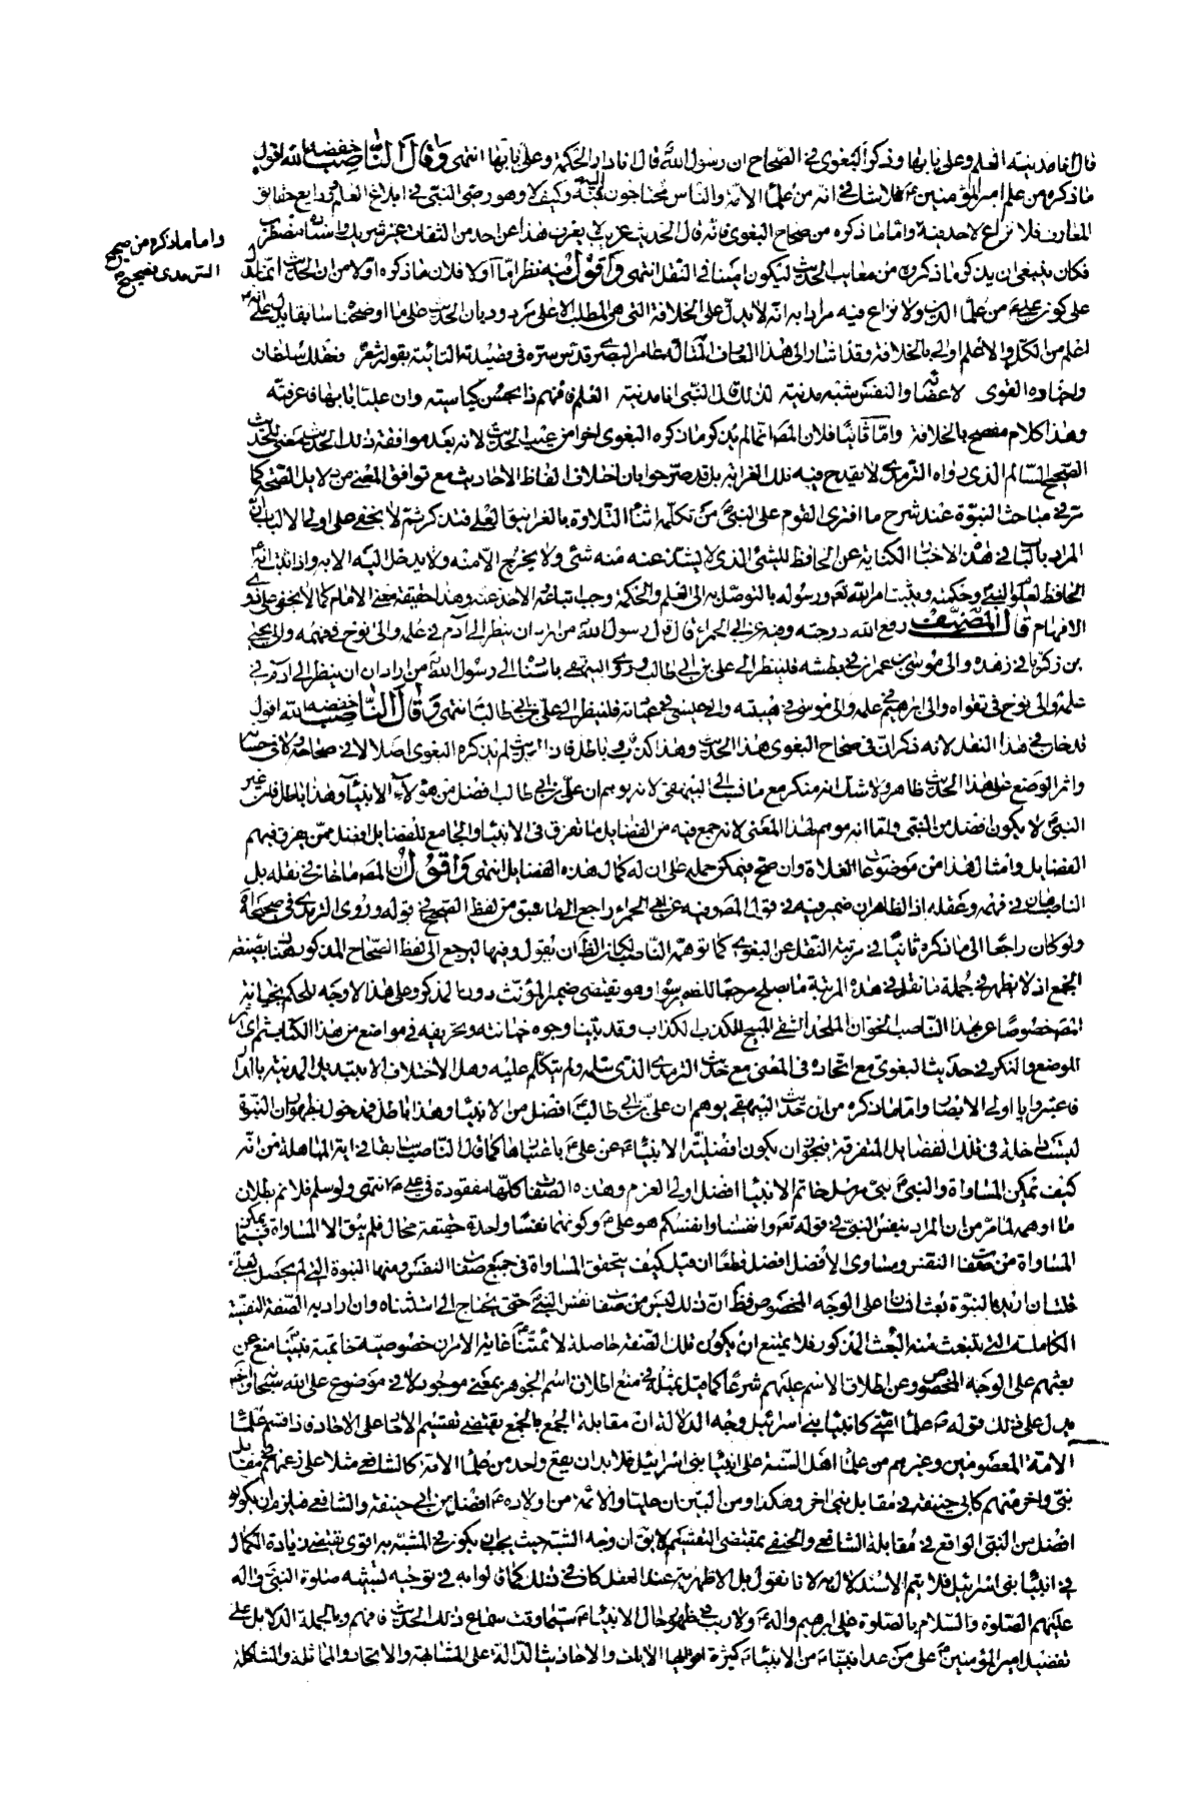 قال انا مدينة العلم وعلى بابها وذكر البغوى في الصحاح ان رسول الله قال انا دار الحكمة وعلى بابها انتهى وقال الناصب خفضه الله اقول
ما ذكره من علم امير المؤمنين ع فلا شك في انه من علماء الامة والناس محتاجون اليه فيه وكيف لا وهو وصى النبي في ابلاغ العلم وبدايع حقايق
المعارف فلا نزاع لاحد فيه واما ما ذكره من صحاح البغوى فانه قال الحديث غريب لا يعرف هذا عن احد من الثقات غير شريك واسناده مضطرب
واما ما ذكره من صحيح
الترمذى فصحيح
فكان ينبغى ان يذكر ما ذكره من معايب الحديث ليكون امينا في النقل انتهى واقول فيه نظر اما اولا فلان ما ذكره اولا من ان الحديث انما يدل
على كونه ع من علماء الدين ولا نزاع فيه مراد به انه لا يدل على الخلافة التى هي المطلب الاعلى مردود بان الحديث على ما اوضحنا سابقا يدل على انه
اعلم من الكل والاعلم اولى بالخلافة وقد اشار الى هذا العارف المتأله عامر البصرى قدس سره في قصيدته التائية بقوله شعر فعقلك سلطان
واجناده القوى لاعضائه والنفس شبه مدينة لذلك قال النبي انا مدينة العلم فافهم ذا بحسن كياسته وان عليا بابها فاعرفنه
وهذا كلام مفصح بالخلافة واما ثانيا فلان المصنف انما لم يذكر ما ذكره البغوى اخرا من عيب الحديث لانه بعد موافقة ذلك الحديث بمعنى للحديث
الصحيح السالم الذى رواه الترمذى لا يقدح فيه تلك الغرابة بل قد صرحوا بان اختلاف الفاظ الاحاديث مع توافق المعنى من دلايل الصحة كما
مر في مباحث النبوة عند شرح ما افترى القوم على النبي من تكلمه اثناء التلاوة بالغرانيق العلى فتذكر ثم لا يخفى على اولى الالباب ان
المراد بالباب في هذه الاخبار الكناية عن الحافظ للشئ الذى لا يشذ عنه منه شئ ولا يخرج الا منه ولا يدخل اليه الا به واذا ثبت انه ع
الحافظ لعلوم النبي وحكمته وثبت امر الله تعم ورسوله بالتوصل به الى العلم والحكمة وجب اتباعه والاخذ عنه وهذا حقيقة معنى الامام كما لا يخفى على ذوى
الافهام قال المصنف رفع الله درجته وفيه عن ابى الحمراء قال قال رسول الله من اراد ان ينظر الى آدم في علمه والى نوح في فهمه والى يحيى
بن زكريا في زهده والى موسى بن عمران في بطشه فلينظر الى على بن ابى طالب وروى البيهقى باسناده الى رسول الله من اراد ان ينظر الى آدم في
علمه والى نوح في تقواه والى ابراهيم في حلمه والى موسى في هيبته والى عيسى في عبادته فلينظر الى على بن ابى طالب انتهى وقال الناصب خفضه الله اقول
قد خان في هذا النقل لانه ذكر ان في صحاح البغوى هذا الحديث وهذا كذب وباطل فان الحديث لم يذكره البغوى اصلا لا في صحاحه ولا في حسانه
واثر الوضع على هذا الحديث ظاهر ولا شك انه منكر مع ما نسب الى البيهقى لانه يوهم ان على بن ابى طالب افضل من هؤلاء الانبياء وهذا باطل فان غير
النبي لا يكون افضل من النبي واما انه موهم لهذا المعنى لانه جمع فيه من الفضايل ما تفرق في الانبياء والجامع للفضايل افضل ممن تفرق فيهم
الفضايل وامثال هذا من موضوعات الغلاة وان صح فيمكن حمله على ان له كمال هذه الفضايل انتهى واقول ان المصنف ما خان في نقله بل
الناصب خان في فهمه وعقله اذ الظاهر ان ضمير فيه في قول المصنف وفيه عن ابى الحمراء راجع الى ما سبق من لفظ الصحيح في قوله وروى الترمذى في صحيحه
ولو كان راجعا الى ما ذكره ثانيا في مرتبة النقل عن البغوى كما توهمه الناصب لكان الظاهر ان يقول وفيها ليرجع الى لفظ الصحاح المذكور هنا بصيغة
الجمع اذ لا يظهر في جملة ما نقله في هذه المرتبة ما يصلح مرجعا للضمير سواه وهو يقتضى ضمير المؤنث دون المذكر وعلى هذا لا وجه للحكم بخيانة
المصنف خصوصا عن هذا الناصب الخوان الملحد الشقى المبيح للكذب الكذاب وقد بينا وجوه خيانته وتحريفه في مواضع من هذا الكتاب ثم اى اثر
الموضع والنكر في حديث البغوى مع اتحاده في المعنى مع حديث الترمذى الذى سلمه ولم يتكلم عليه وهل الاختلاف الا بتبديل المدينة بالدار
فاعتبروا يا اولى الابصار واما ما ذكره من ان حديث البيهقى يوهم ان على بن ابى طالب افضل من الانبياء وهذا باطل فمدخول بظهور ان النبوة
ليست داخلة في تلك الفضايل المتفرقة فيجوز ان يكون افضلية الانبياء عن على ع باعتبارها كما قال الناصب سابقا في اية المباهلة من انه
كيف يمكن المساواة والنبي نبى مرسل خاتم الانبياء افضل اولى العزم وهذه الصفات كلها مفقودة في على ع انتهى ولو سلم فلا نم بطلان
ما اوهمه لما مر من ان المراد بنفس النبي في قوله تعم وانفسنا وانفسكم هو على ع وكونهما نفسا واحدة حقيقة محال فلم يبق الا المساواة فيما يمكن
المساواة من صفات النفس ومساوى الافضل افضل قطعا ان قيل كيف يتحقق المساواة في جميع صفات النفس ومنها النبوة التى لم يحصل لعلى ع
قلنا ان اريد بالنبوة بعث انسان على الوجه المخصوص فظ ان ذلك ليس من صفات نفس النبي حتى يحتاج الى استثناه وان اراد به الصفة النفسية
الكاملة التى تنبعث منه البعث المذكور فلا يمتنع ان يكون تلك الصفة حاصلة لائمتنا غاية الامر ان خصوصية خاتمية نبينا منع عن
بعثهم على الوجه المخصوص وعن اطلاق الاسم عليهم شرعا كما قيل بمثله في منع اطلاق اسم الجوهر بمعنى موجود لا في موضوع على الله سبحانه
يدل على ذلك قوله ص علماء امتى كانبياء بنى اسرائيل وجه الدلالة ان مقابلة الجمع بالجمع يقتضى تقسيم الاحاد على الاحاد فاذا قسم علماء
الامة المعصومين وغيرهم من علماء اهل السنة على انبياء بنى اسرائيل فلا بد ان يقع واحد من علماء الامة كالشافعى مثلا على زعمهم في مقابل
نبى واخر منهم كابى حنيفة في مقابل نبى اخر وهكذا ومن البين ان عليا والائمة من اولاده ع افضل من ابى حنيفة والشافعى فيلزم ان يكونوا
افضل من النبي الواقع في مقابلة الشافعى والحنفى بمقتضى التقسيم لا يق ان وجه الشبه حيث يجب ان يكون في المشبه به اقوى يقتضى زيادة الكمال
في انبياء بنى اسرائيل فلا يتم الاستدلال به لانا نقول بل الاظهرية عند العقل كاف في ذلك كما قالوا به في توجيه تشبيه صلوة النبي واله
عليهم الصلوة والسلام بالصلوة على ابراهيم واله ع ولا ريب في ظهور حال الانبياء ع سيما وقت سماع ذلك الحديث فافهم وبالجملة الدلايل على
تفضيل امير المؤمنين ع على من عدا نبينا ص من الانبياء ع كثيرة اولها الايات والاحاديث الدالة على المشابهة والاتحاد والمماثلة والمشاكلة